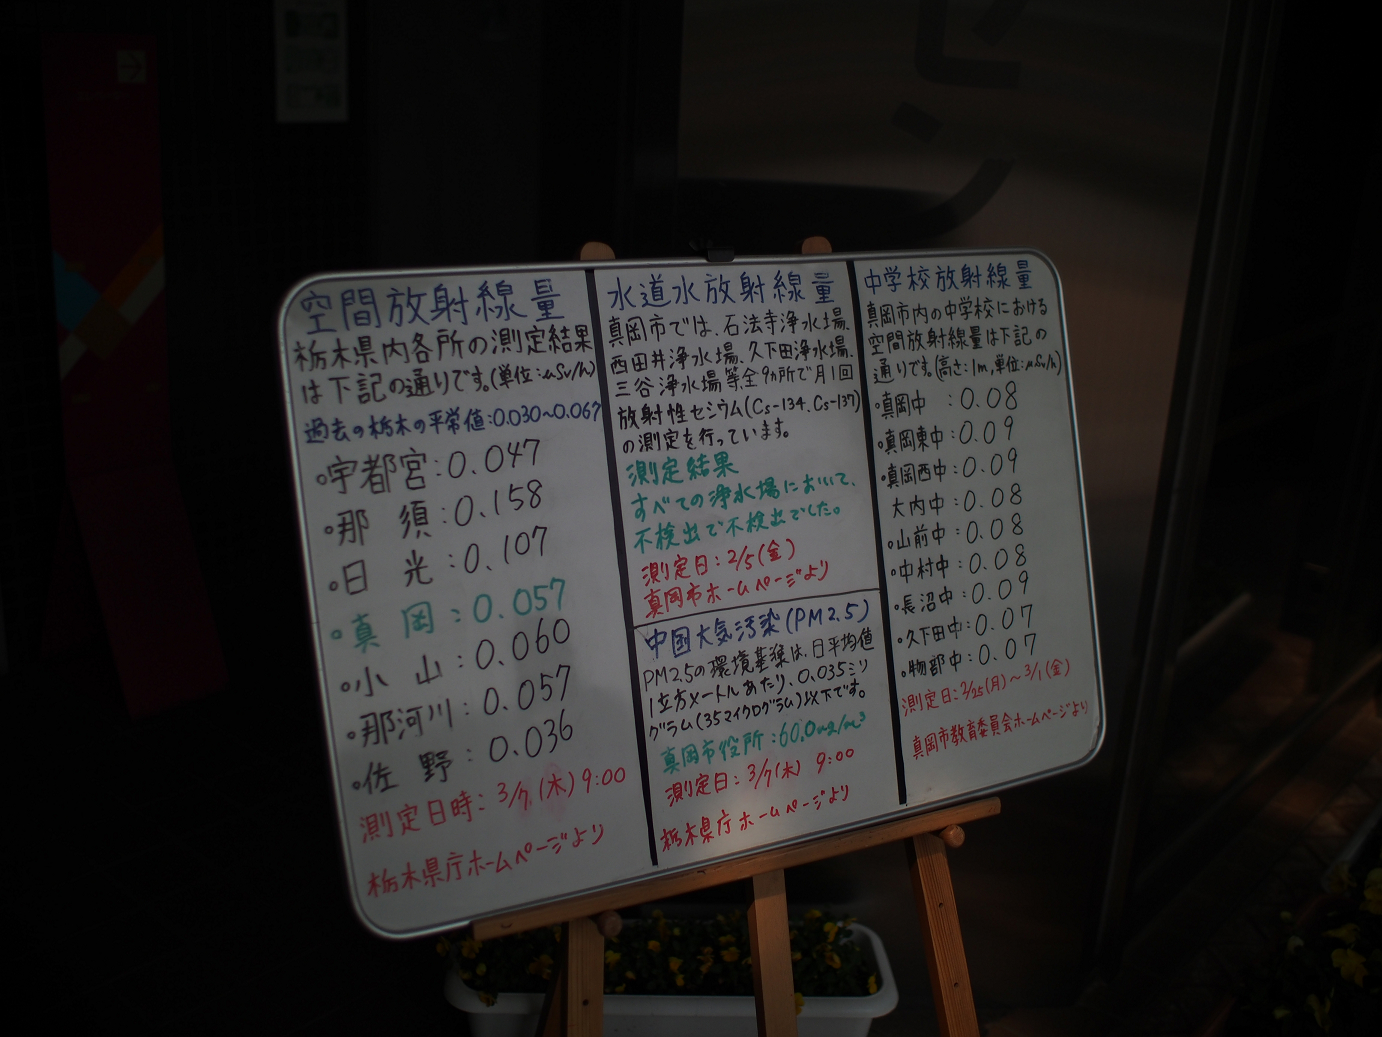 空間放射線量
栃木県内各所の測定結果
は下記の通りです。(単位:μSv/h)
過去の栃木の平常値:0.030~0.067
・宇都宮:0.047
・那 須:0.158
・日 光:0.107
・真 岡:0.057
・小 山:0.060
・那河川:0.057
・佐 野:0.036
測定日時:3/7(木)9:00
栃木県庁ホームページより
水道水放射線量
真岡市では、石法寺浄水場、
西田井浄水場、久下田浄水場、
三谷浄水場等全9ヵ所で月1回
放射性セシウム(Cs-134、Cs-137)
の測定を行っています。
測定結果
すべての浄水場において、
不検出で不検出でした。
測定日:2/5(金)
真岡市ホームページより
中国大気汚染(PM2.5)
PM2.5の環境基準は、日平均値
1立方メートルあたり、0.035ミリ
グラム(35マイクログラム)以下です。
真岡市役所:60.0ug/m³
測定日:3/7(木) 9:00
栃木県庁ホームページより
中学校放射線量
真岡市内の中学校における
空間放射線量は下記の
通りです。(高さ:1m,単位:μSv/h)
・真岡中 :0.08
・真岡東中:0.09
・真岡西中:0.09
大内中:0.08
・山前中:0.08
・中村中:0.08
・長沼中:0.09
・久下田中:0.07
・物部中:0.07
測定日:2/25(月)~3/1(金)
真岡市教育委員会ホームページより